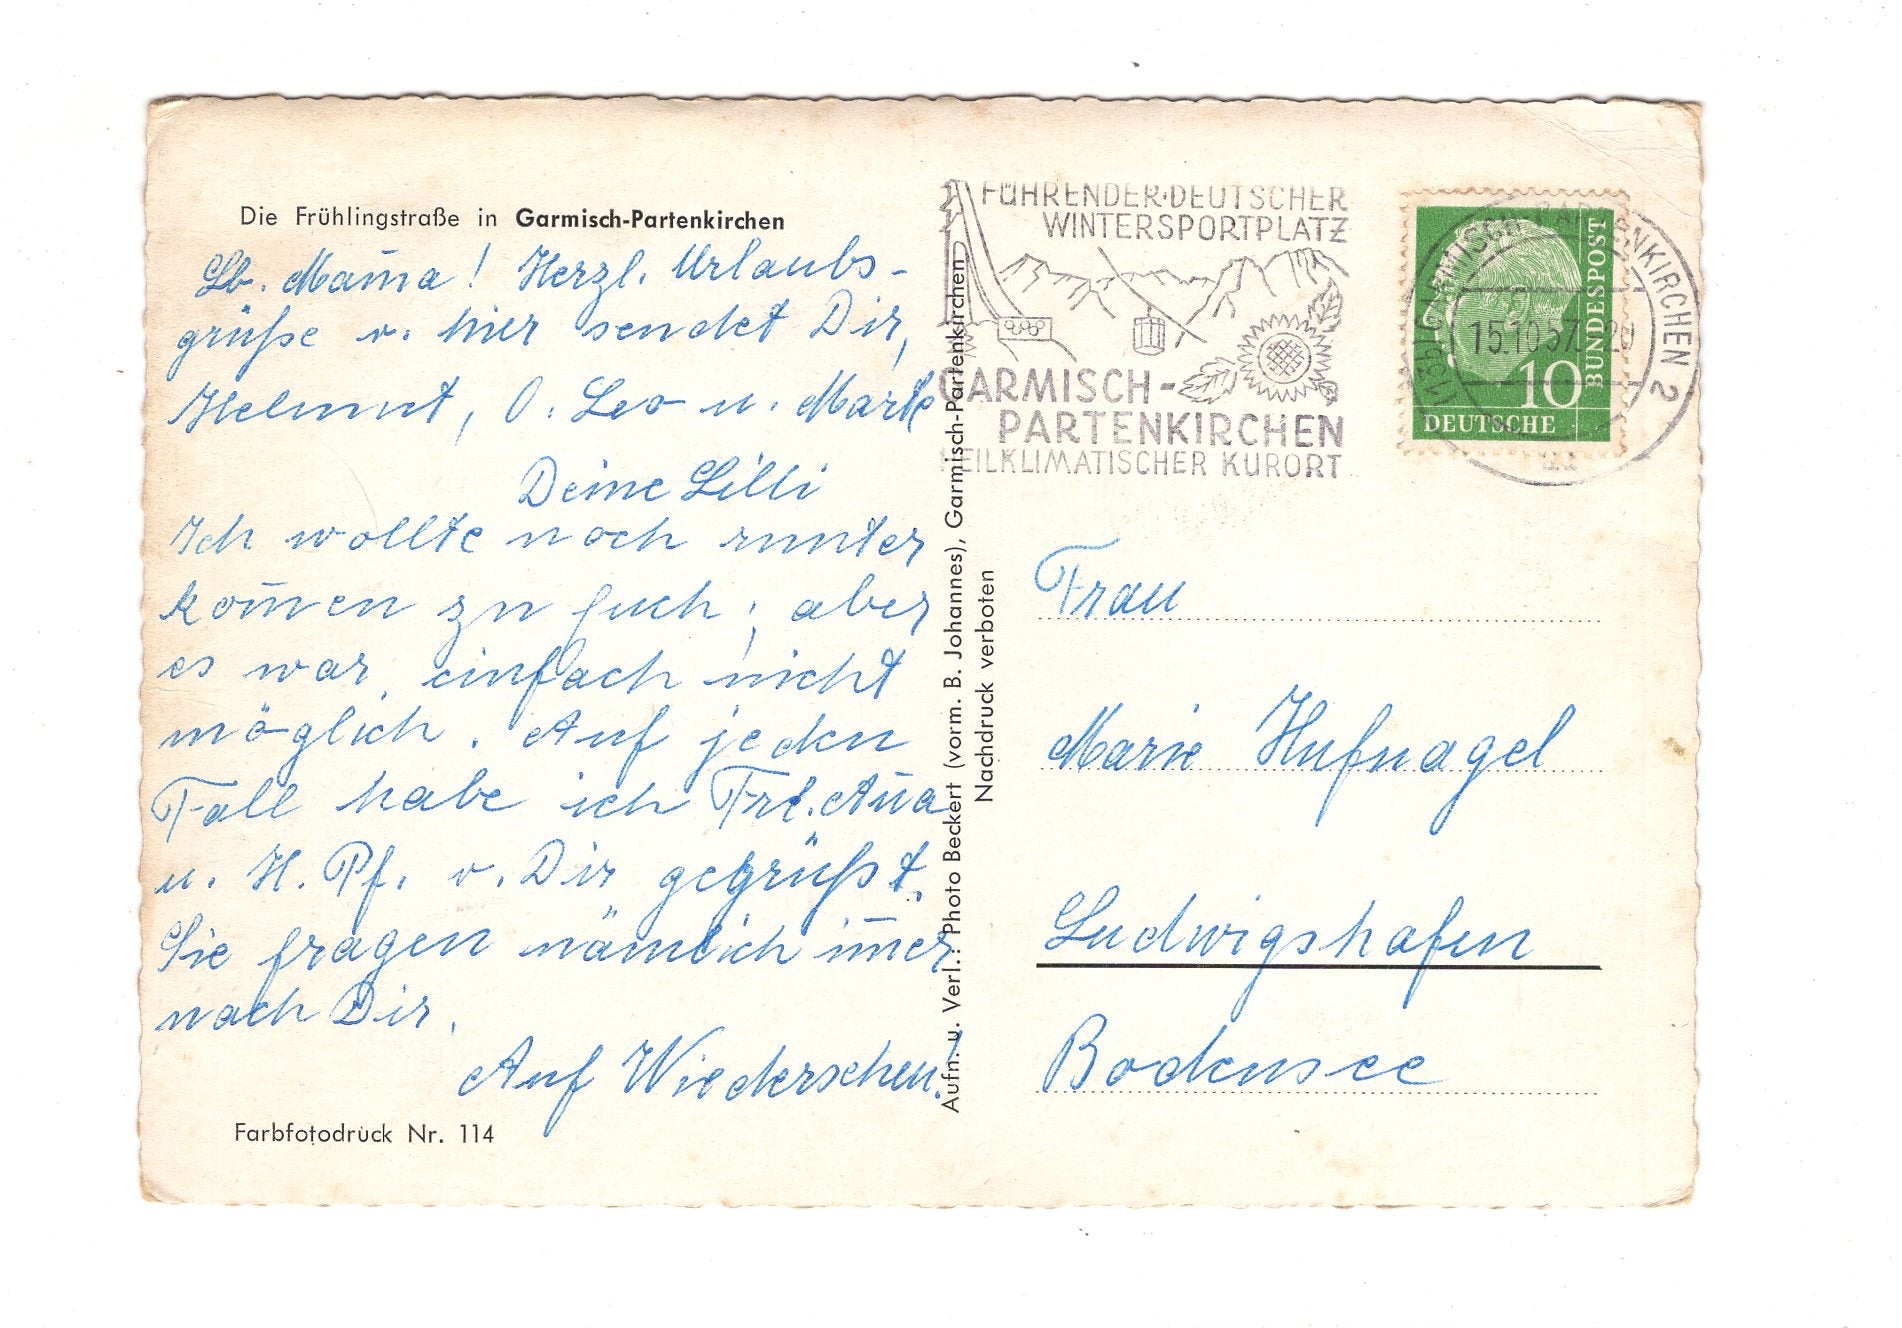 Die Frühlingstraße in Garmisch-Partenkirchen
Lb. Mam̄a! Herzl. Urlaubs-
grüße v. hier sendet Dir,
Helmut, O. Leo u.
Deine Lilli
Ich wollte noch runter
kom̄en zu Euch, aber
es war einfach nicht
möglich. Auf jeden
Fall habe ich Frl. An̄a
u. H. Pf. v. Dir gegrüßt.
Sie fragen nämlich im̄er
nach Dir.
Auf Wiedersehen!
Farbfotodruck Nr. 114
Aufn. u. Verl.: Photo Beckert (vorm. B. Johannes), Garmisch-Partenkirchen
Nachdruck verboten
FÜHRENDER·DEUTSCHER
WINTERSPORTPLATZ
GARMISCH-
PARTENKIRCHEN
HEILKLIMATISCHER KURORT
GARMISCH-PARTENKIRCHEN 2
15.10.57
DEUTSCHE
BUNDESPOST
10
Frau
Marie Hufnagel
Ludwigshafen
Bodensee